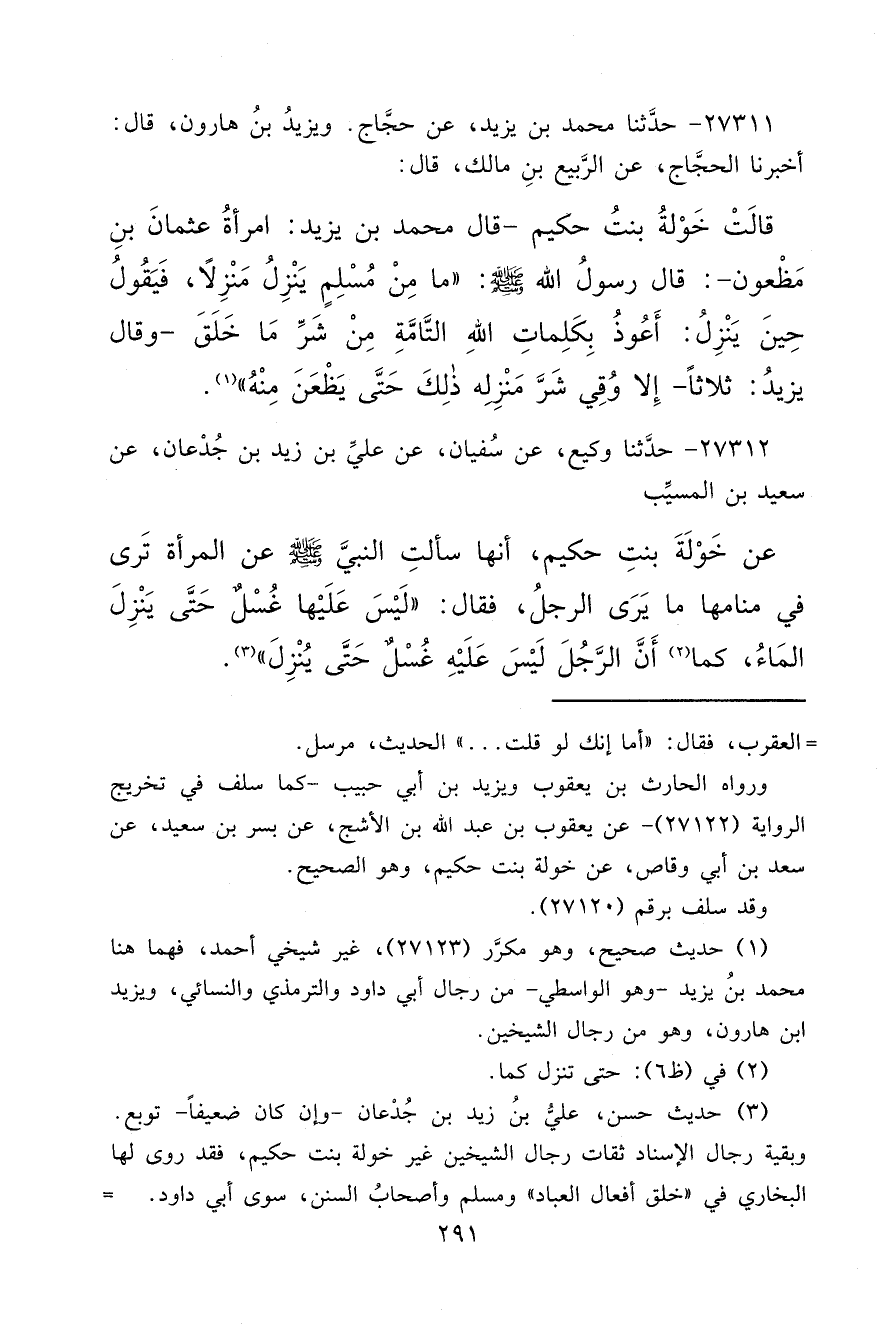 ٢٧٣١١- حدَّثنا محمد بن يزيد، عن حجَّاج. ويزيدُ بنُ هارون، قال:
أخبرنا الحجَّاج، عن الرَّبيع بنِ مالك، قال:
قالَتْ خَوْلةُ بنتُ حكيم -قال محمد بن يزيد: امرأةُ عثمانَ بنِ
مَظْعون-: قال رسولُ الله ﷺ: «ما مِنْ مُسْلِمٍ يَنْزِلُ مَنْزِلًا، فَيَقُولُ
حِينَ يَنْزِلُ: أَعُوذُ بِكَلِماتِ اللهِ التَّامَّةِ مِنْ شَرِّ مَا خَلَقَ -وقال
يزيدُ: ثلاثاً- إِلا وُقِي شَرَّ مَنْزِلِه ذٰلِكَ حَتَّى يَظْعَنَ مِنْهُ»(١).
٢٧٣١٢- حدَّثنا وكيع، عن سُفيان، عن عليِّ بن زيد بن جُدْعان، عن
سعيد بن المسيِّب
عن خَوْلَةَ بنتِ حكيم، أنها سألتِ النبيَّ ﷺ عن المرأة تَرى
في منامها ما يَرَى الرجلُ، فقال: «لَيْسَ عَلَيْها غُسْلٌ حَتَّى يَنْزِلَ
المَاءُ، كما(٢) أَنَّ الرَّجُلَ لَيْسَ عَلَيْهِ غُسْلٌ حَتَّى يُنْزِلَ»(٣).
= العقرب، فقال: «أما إنك لو قلت...» الحديث، مرسل.
ورواه الحارث بن يعقوب ويزيد بن أبي حبيب -كما سلف في تخريج
الرواية (٢٧١٢٢)- عن يعقوب بن عبد الله بن الأشج، عن بسر بن سعيد، عن
سعد بن أبي وقاص، عن خولة بنت حكيم، وهو الصحيح.
وقد سلف برقم (٢٧١٢٠).
(١) حديث صحيح، وهو مكرَّر (٢٧١٢٣)، غير شيخي أحمد، فهما هنا
محمد بنُ يزيد -وهو الواسطي- من رجال أبي داود والترمذي والنسائي، ويزيد
ابن هارون، وهو من رجال الشيخين.
(٢) في (ظ٦): حتى تنزل كما.
(٣) حديث حسن، عليُّ بنُ زيد بن جُدْعان -وإن كان ضعيفاً- توبع.
وبقية رجال الإسناد ثقات رجال الشيخين غير خولة بنت حكيم، فقد روى لها
البخاري في «خلق أفعال العباد» ومسلم وأصحابُ السنن، سوى أبي داود. =
٢٩١